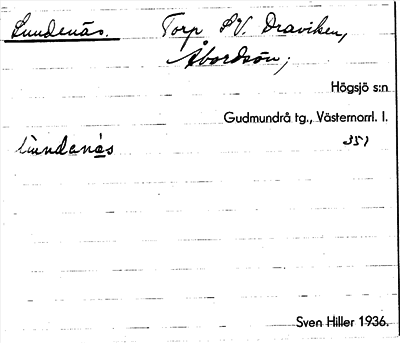 Lundenäs. Torp SV. Draviken,
Åbordsön,
Högsjö s:n
Gudmundrå tg., Västernorrl. l.
lundenäs 351
Sven Hiller 1936.